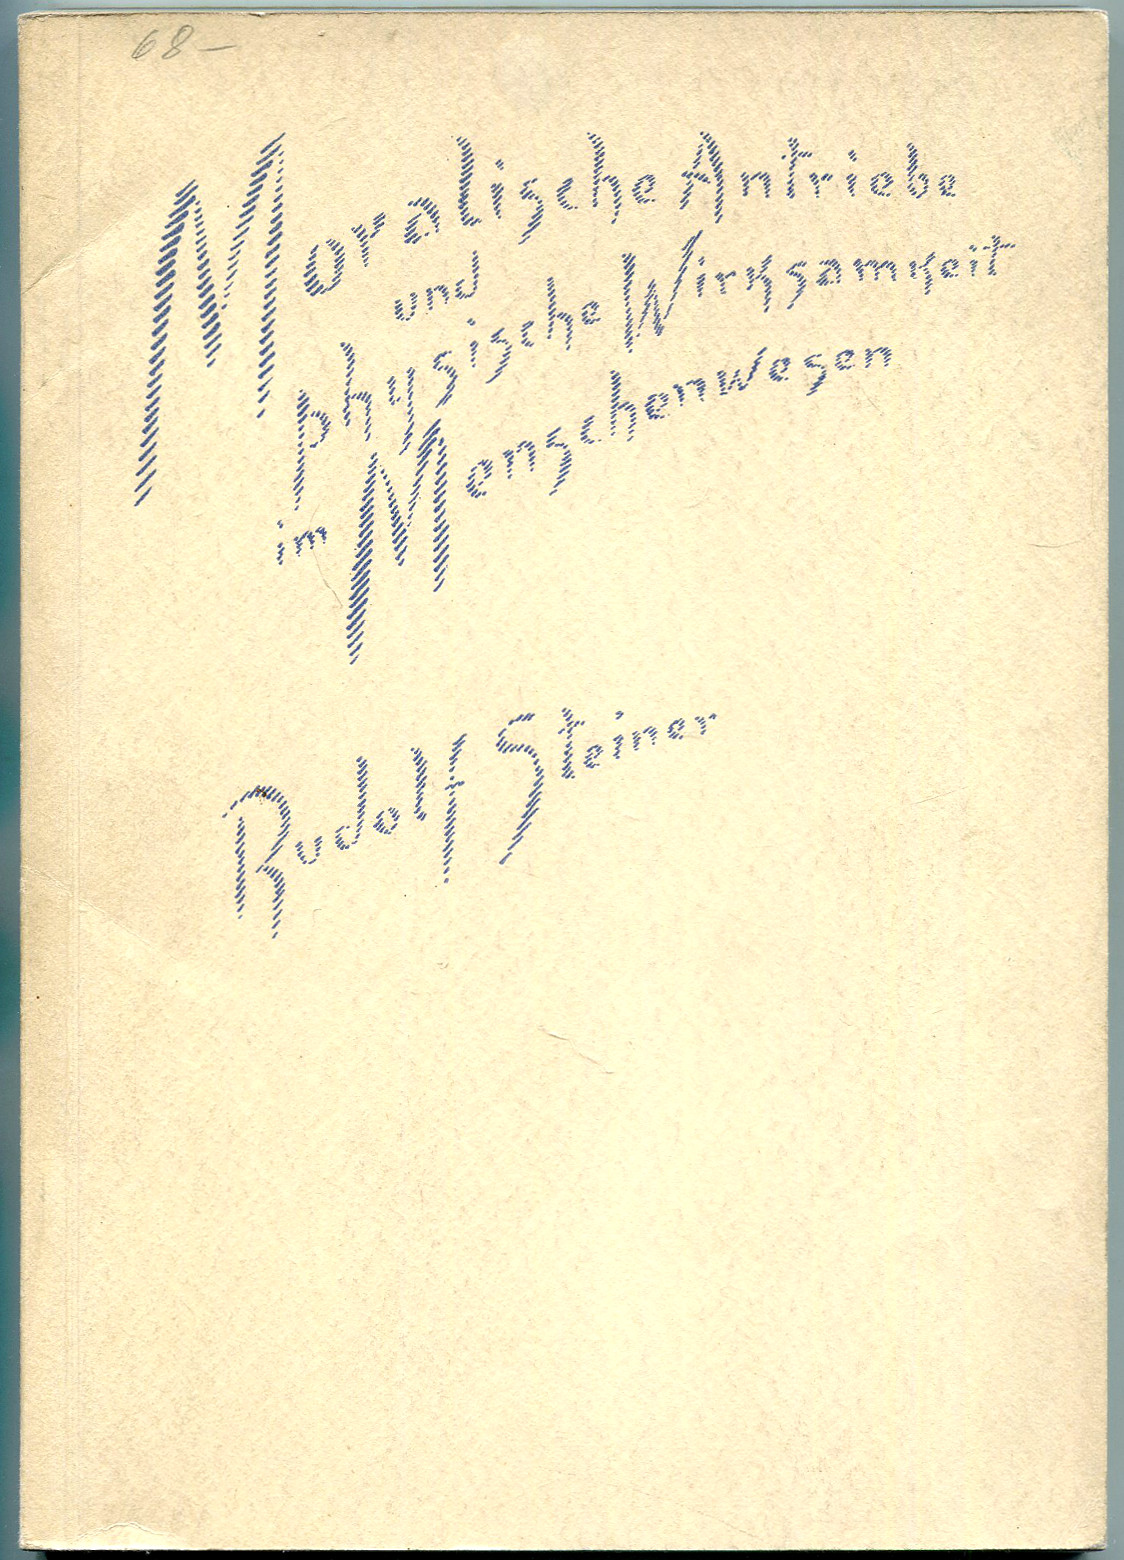 68-
Moralische Antriebe
und
physische Wirksamkeit
im Menschenwesen
Rudolf Steiner